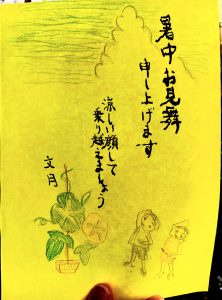 暑中お見舞
申し上げます
涼しい顔して
乗り越えましょう
文月